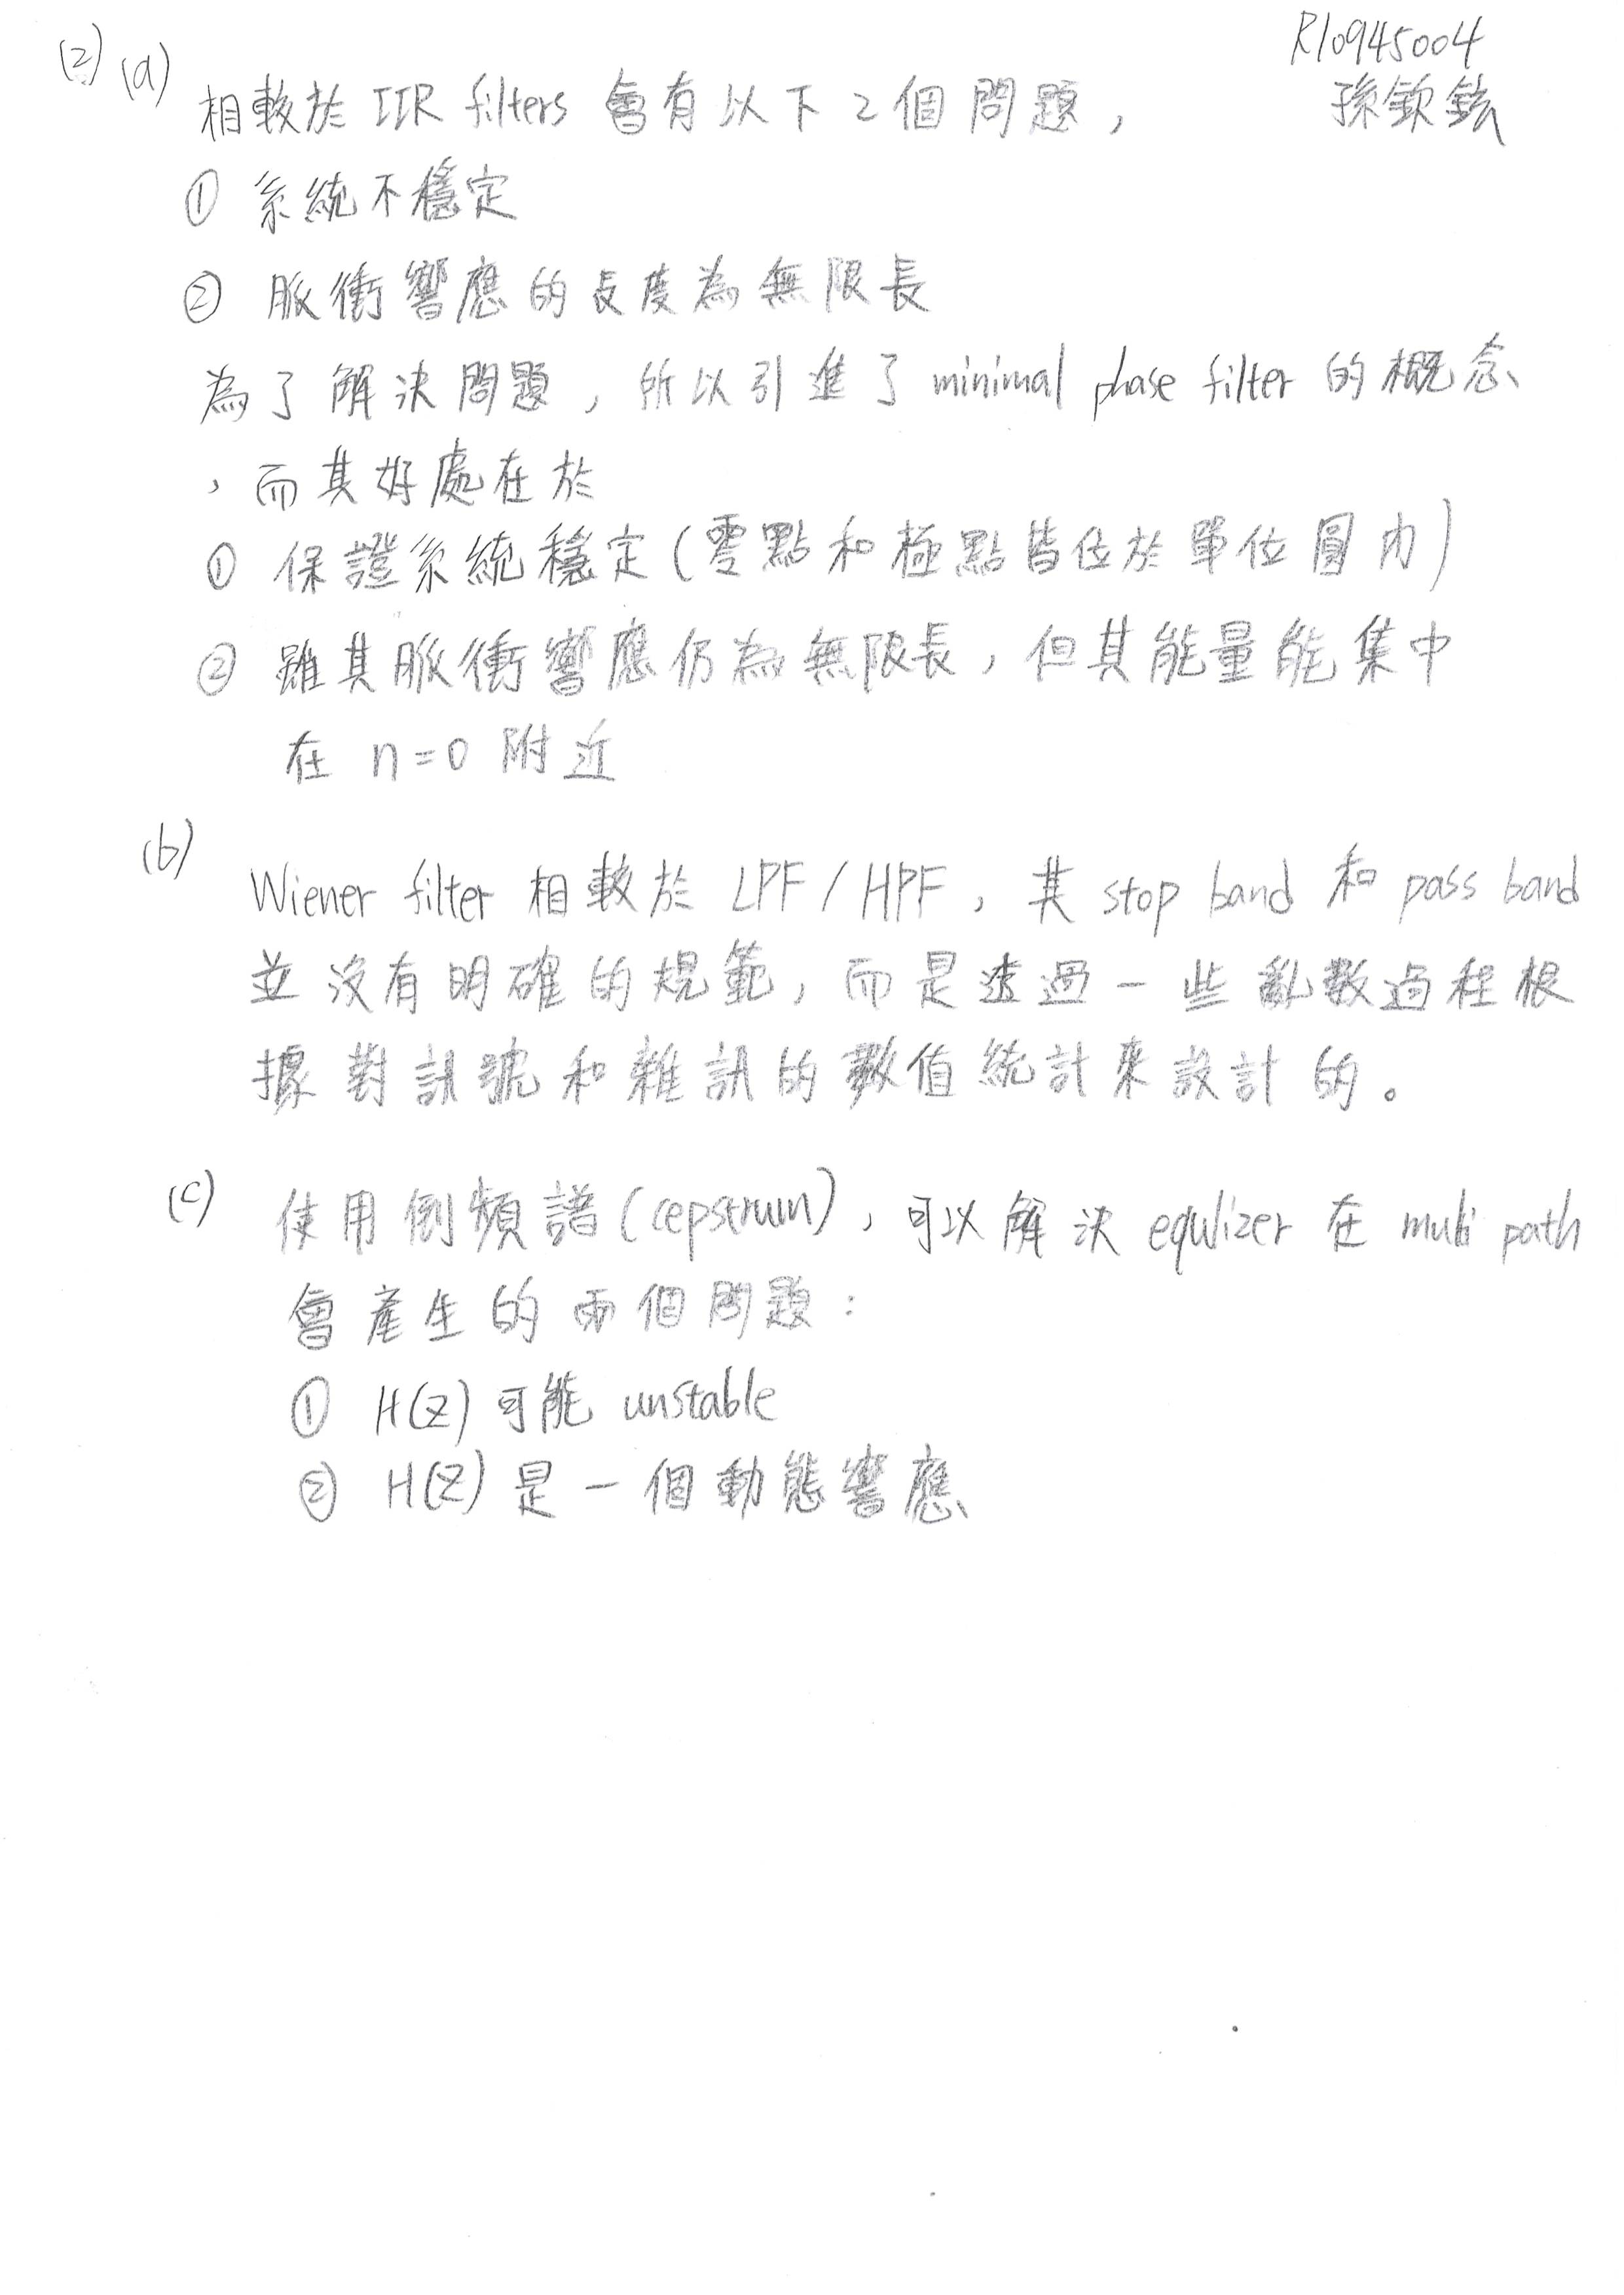 R10945004
孫欽鉉
(2) (a)
相較於 IIR filters 會有以下 2 個問題,
① 系統不穩定
② 脈衝響應的長度為無限長
為了解決問題, 所以引進了 minimal phase filter 的概念
, 而其好處在於
① 保證系統穩定(零點和極點皆位於單位圓內)
② 雖其脈衝響應仍為無限長, 但其能量能集中
在 n=0 附近
(b)
Wiener filter 相較於 LPF / HPF, 其 stop band 和 pass band
並沒有明確的規範, 而是透過一些亂數過程根
據對訊號和雜訊的數值統計來設計的。
(c) 使用倒頻譜(cepstrum), 可以解決 equlizer 在 multi path
會產生的兩個問題:
① H(z) 可能 unstable
② H(z) 是一個動態響應